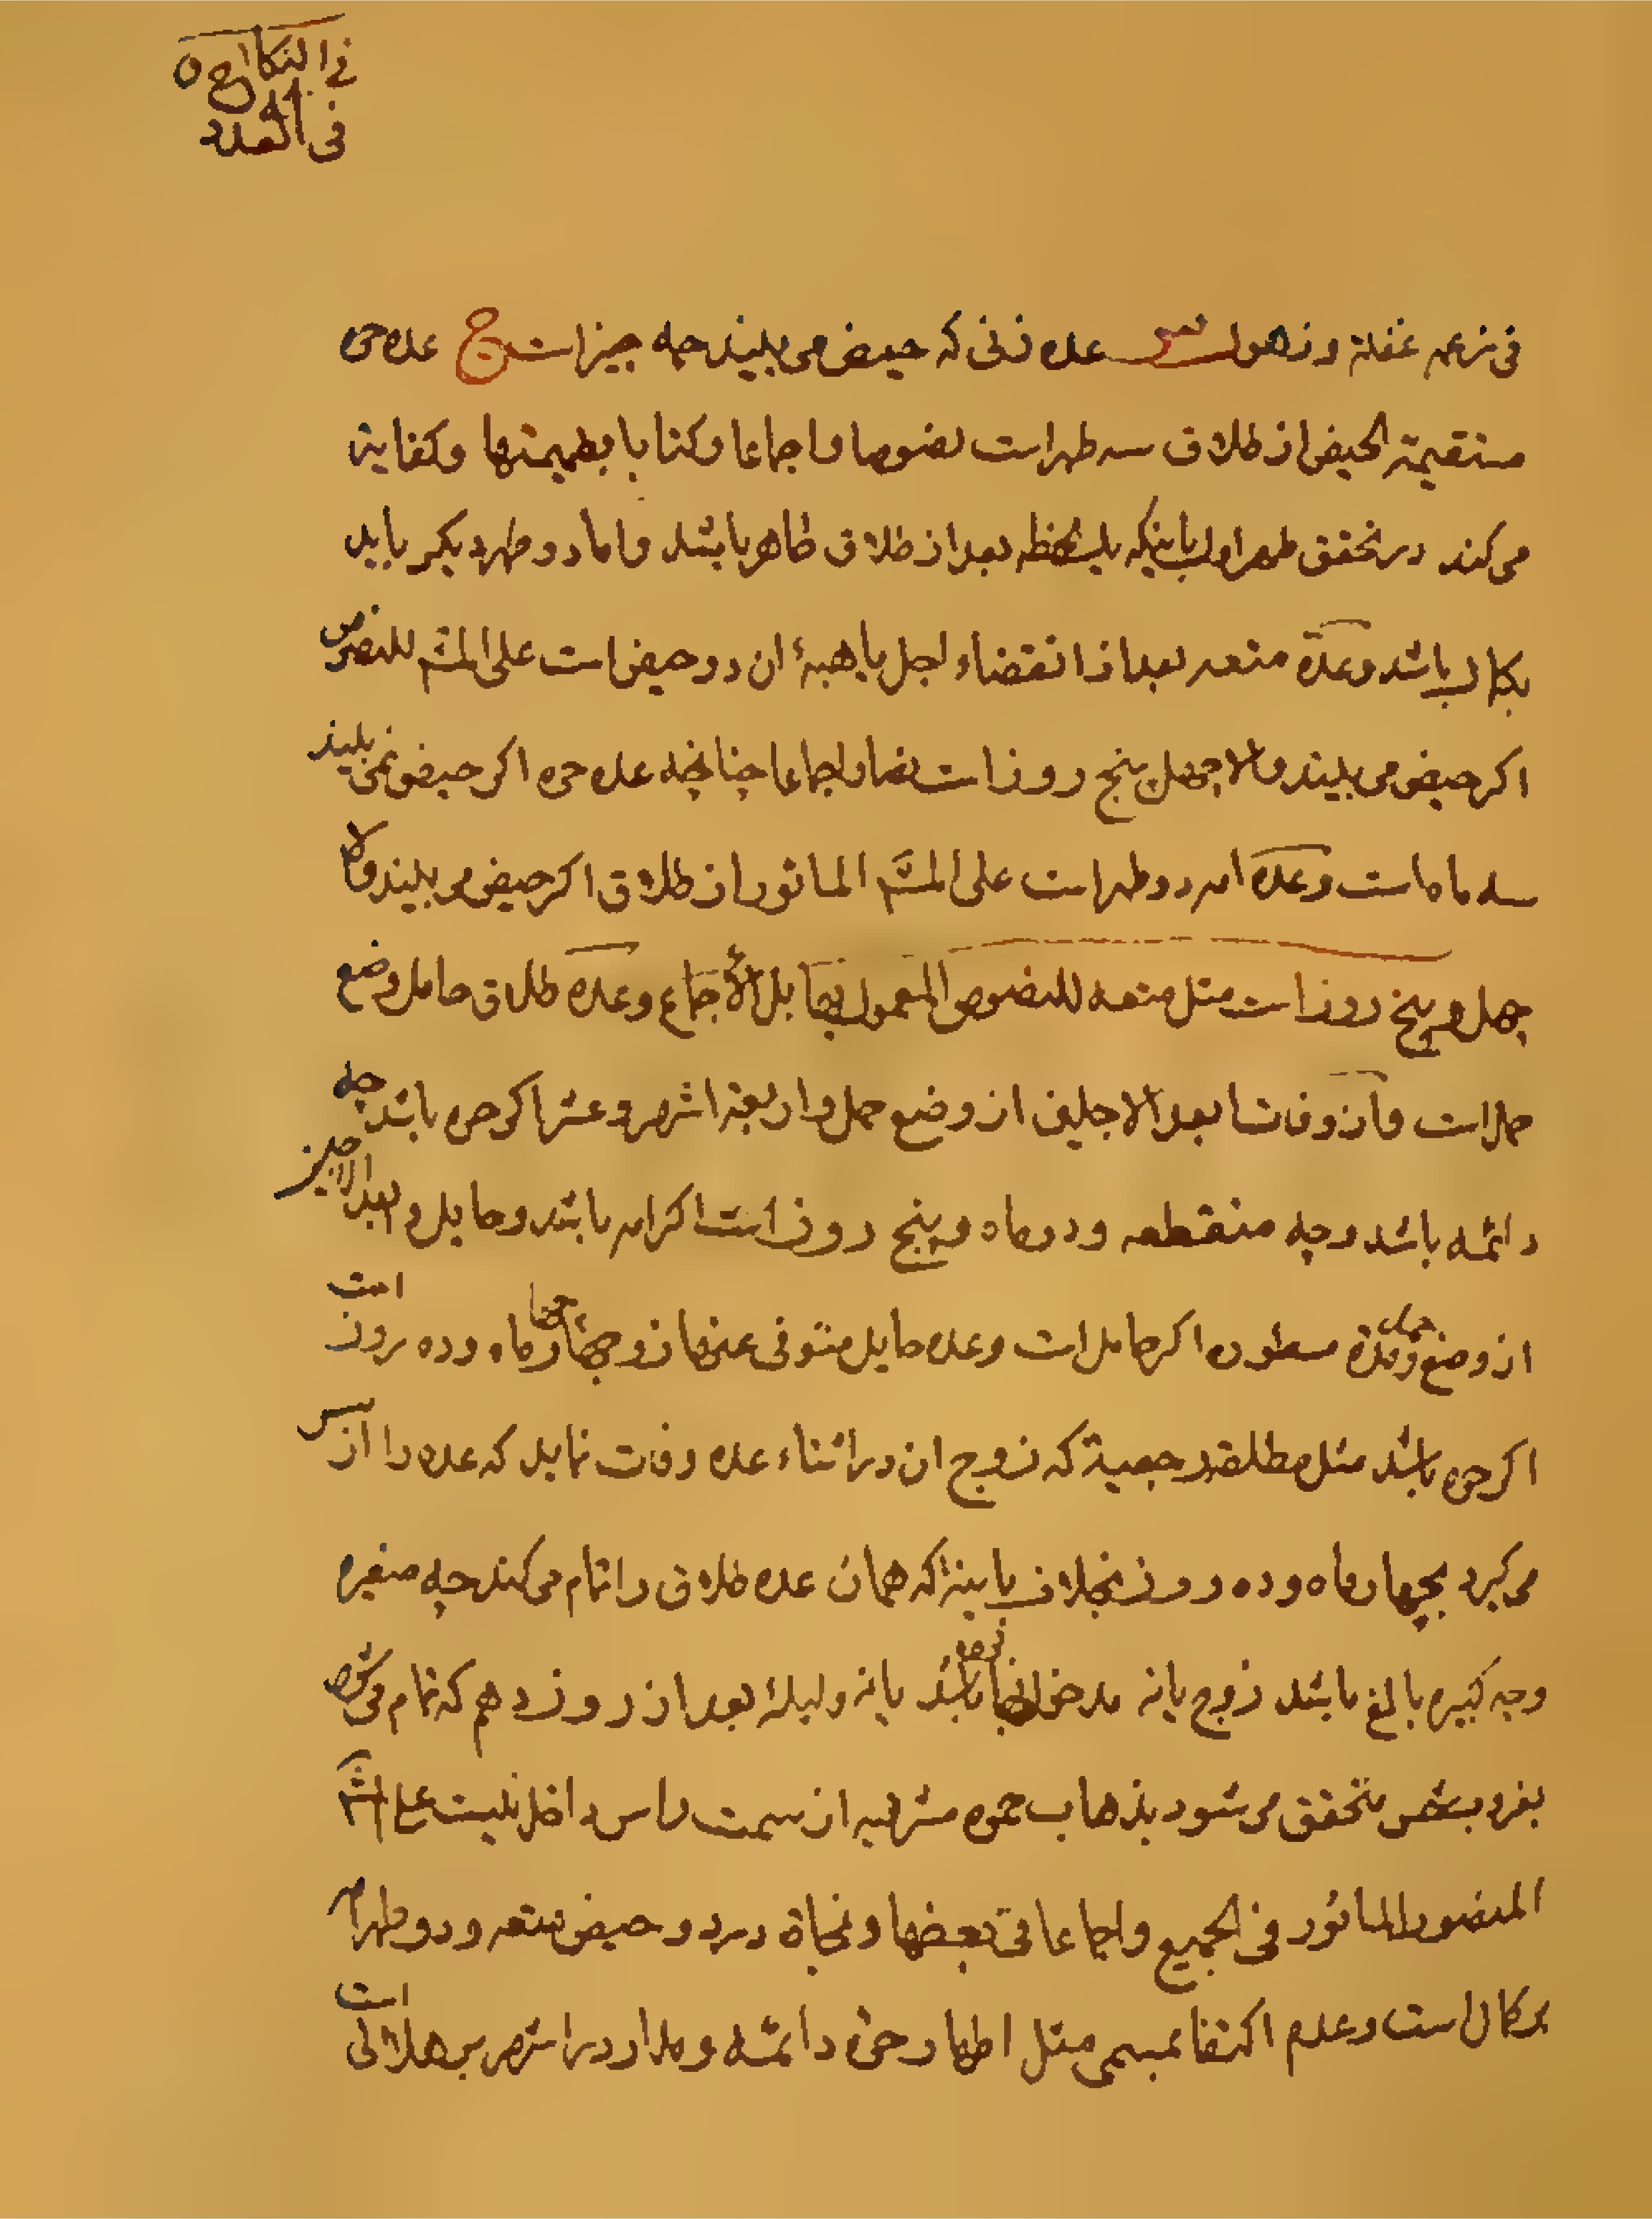 فی النکاح
فی العدد
فی زعمه غفلة و ذهول س عده زنی که حیض می بیند چه چیز است ج عده حره
مستقیمة الحیض از طلاق سه طهر است نصوصا و اجماعا و کتابا بطهیتها و کفایة
می کند در تحقق طهر اول باینکه یک لحظه بعد از طلاق طاهر باشد و اما دو طهر دیکر باید
بکمال باشد و عدة متعه بعد از انقضاء اجل یا هبهٔ ان دو حیض است علی المش للنصوص
اکر حیض می بیند والا چهل پنج روز است نصا و اجماعا چنانچه عده حره اکر حیض نمی بیند
سه ماه است و عده امه دو طهر است علی المش الماثور از طلاق اکر حیض می بیند والا
چهل و پنج روز است مثل متعه للنصوص المعمول بها بل الاجماع و عده طلاق حامل وضع
حمل است و از وفات ابعد الاجلین از وضع حمل و اربعة اشهر و عشرا کر حره باشد چه
دائمه باشد و چه منقطعه و دو ماه و پنج روز است اکر امه باشد و حایل و ابعد الاجلین
از وضع حمل و مدة مسطوره اکر حامل است و عده حایل متوفی عنها زوجها چهار ماه و ده روز است
اکر حره باشد مثل مطلقه رجعیة که زوج ان در اثناء عده وفات نماید که عده را از سر
می کیرد بچهار ماه و ده روز بخلاف باینه که همان عده طلاق را تمام می کند چه صغیره
و چه کبیره بالغ باشد زوج یا نه مدخول بها باشد یا نه و لیلهٔ بعد از روز دهم که تمام می شود
بغروب شمس متحقق می شود بذهاب حمره مشرقیه از سمت راس داخل نیست علی المش
المنصور الماثور فی الجمیع و اجماعا فی بعضها و نجاة در دو حیض متعه و دو طهر امه
بر کمال است و عدم اکتفا بمسمی مثل اطهار حره دائمه و مدار در اشهر بر هلالی است